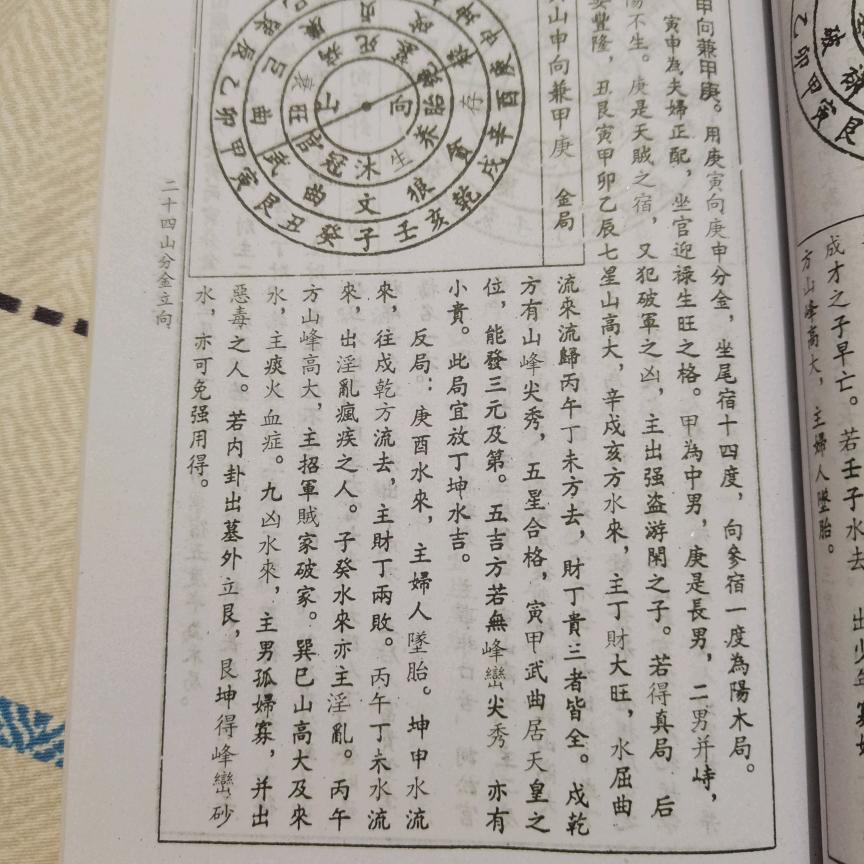 甲向兼甲庚。用庚寅向庚申分金，坐尾宿十四度，向參宿一度為陽木局。
寅申為夫婦正配，坐官迎祿生旺之格。甲為中男，庚是長男，二男并峙，
陽不生。庚是天賊之宿，又犯破軍之凶，主出强盗游閑之子。若得真局，后
妻豐隆，丑艮寅甲卯乙辰七星山高大，辛戌亥方水來，主丁財大旺，水屈曲
流來流歸丙午丁未方去，財丁貴三者皆全。戌乾
方有山峰尖秀，五星合格，寅甲武曲居天皇之
位，能發三元及第。五吉方若無峰巒尖秀，亦有
小貴。此局宜放丁坤水吉。
反局：庚酉水來，主婦人墜胎。坤申水流
來，往戌乾方流去，主財丁兩敗。丙午丁未水流
來，出淫亂瘋疾之人。子癸水來亦主淫亂。丙午
方山峰高大，主招軍賊家破家。巽巳山高大及來
水，主痰火血症。九凶水來，主男孤婦寡，并出
惡毒之人。若内卦出墓外立艮，艮坤得峰巒砂
水，亦可免强用得。
山申向兼甲庚 金局
二十四山分金立向
向
胎
养
生
沐
冠
官
旺
病
死
存
貪
狼
文
曲
武
曲
酉
辛
戌
乾
亥
壬
子
癸
丑
艮
寅
甲
卯
乙
辰
巽
巳
破
乙卯甲寅艮
成才之子早亡。若壬子水去
方山峰高大，主婦人墜胎。